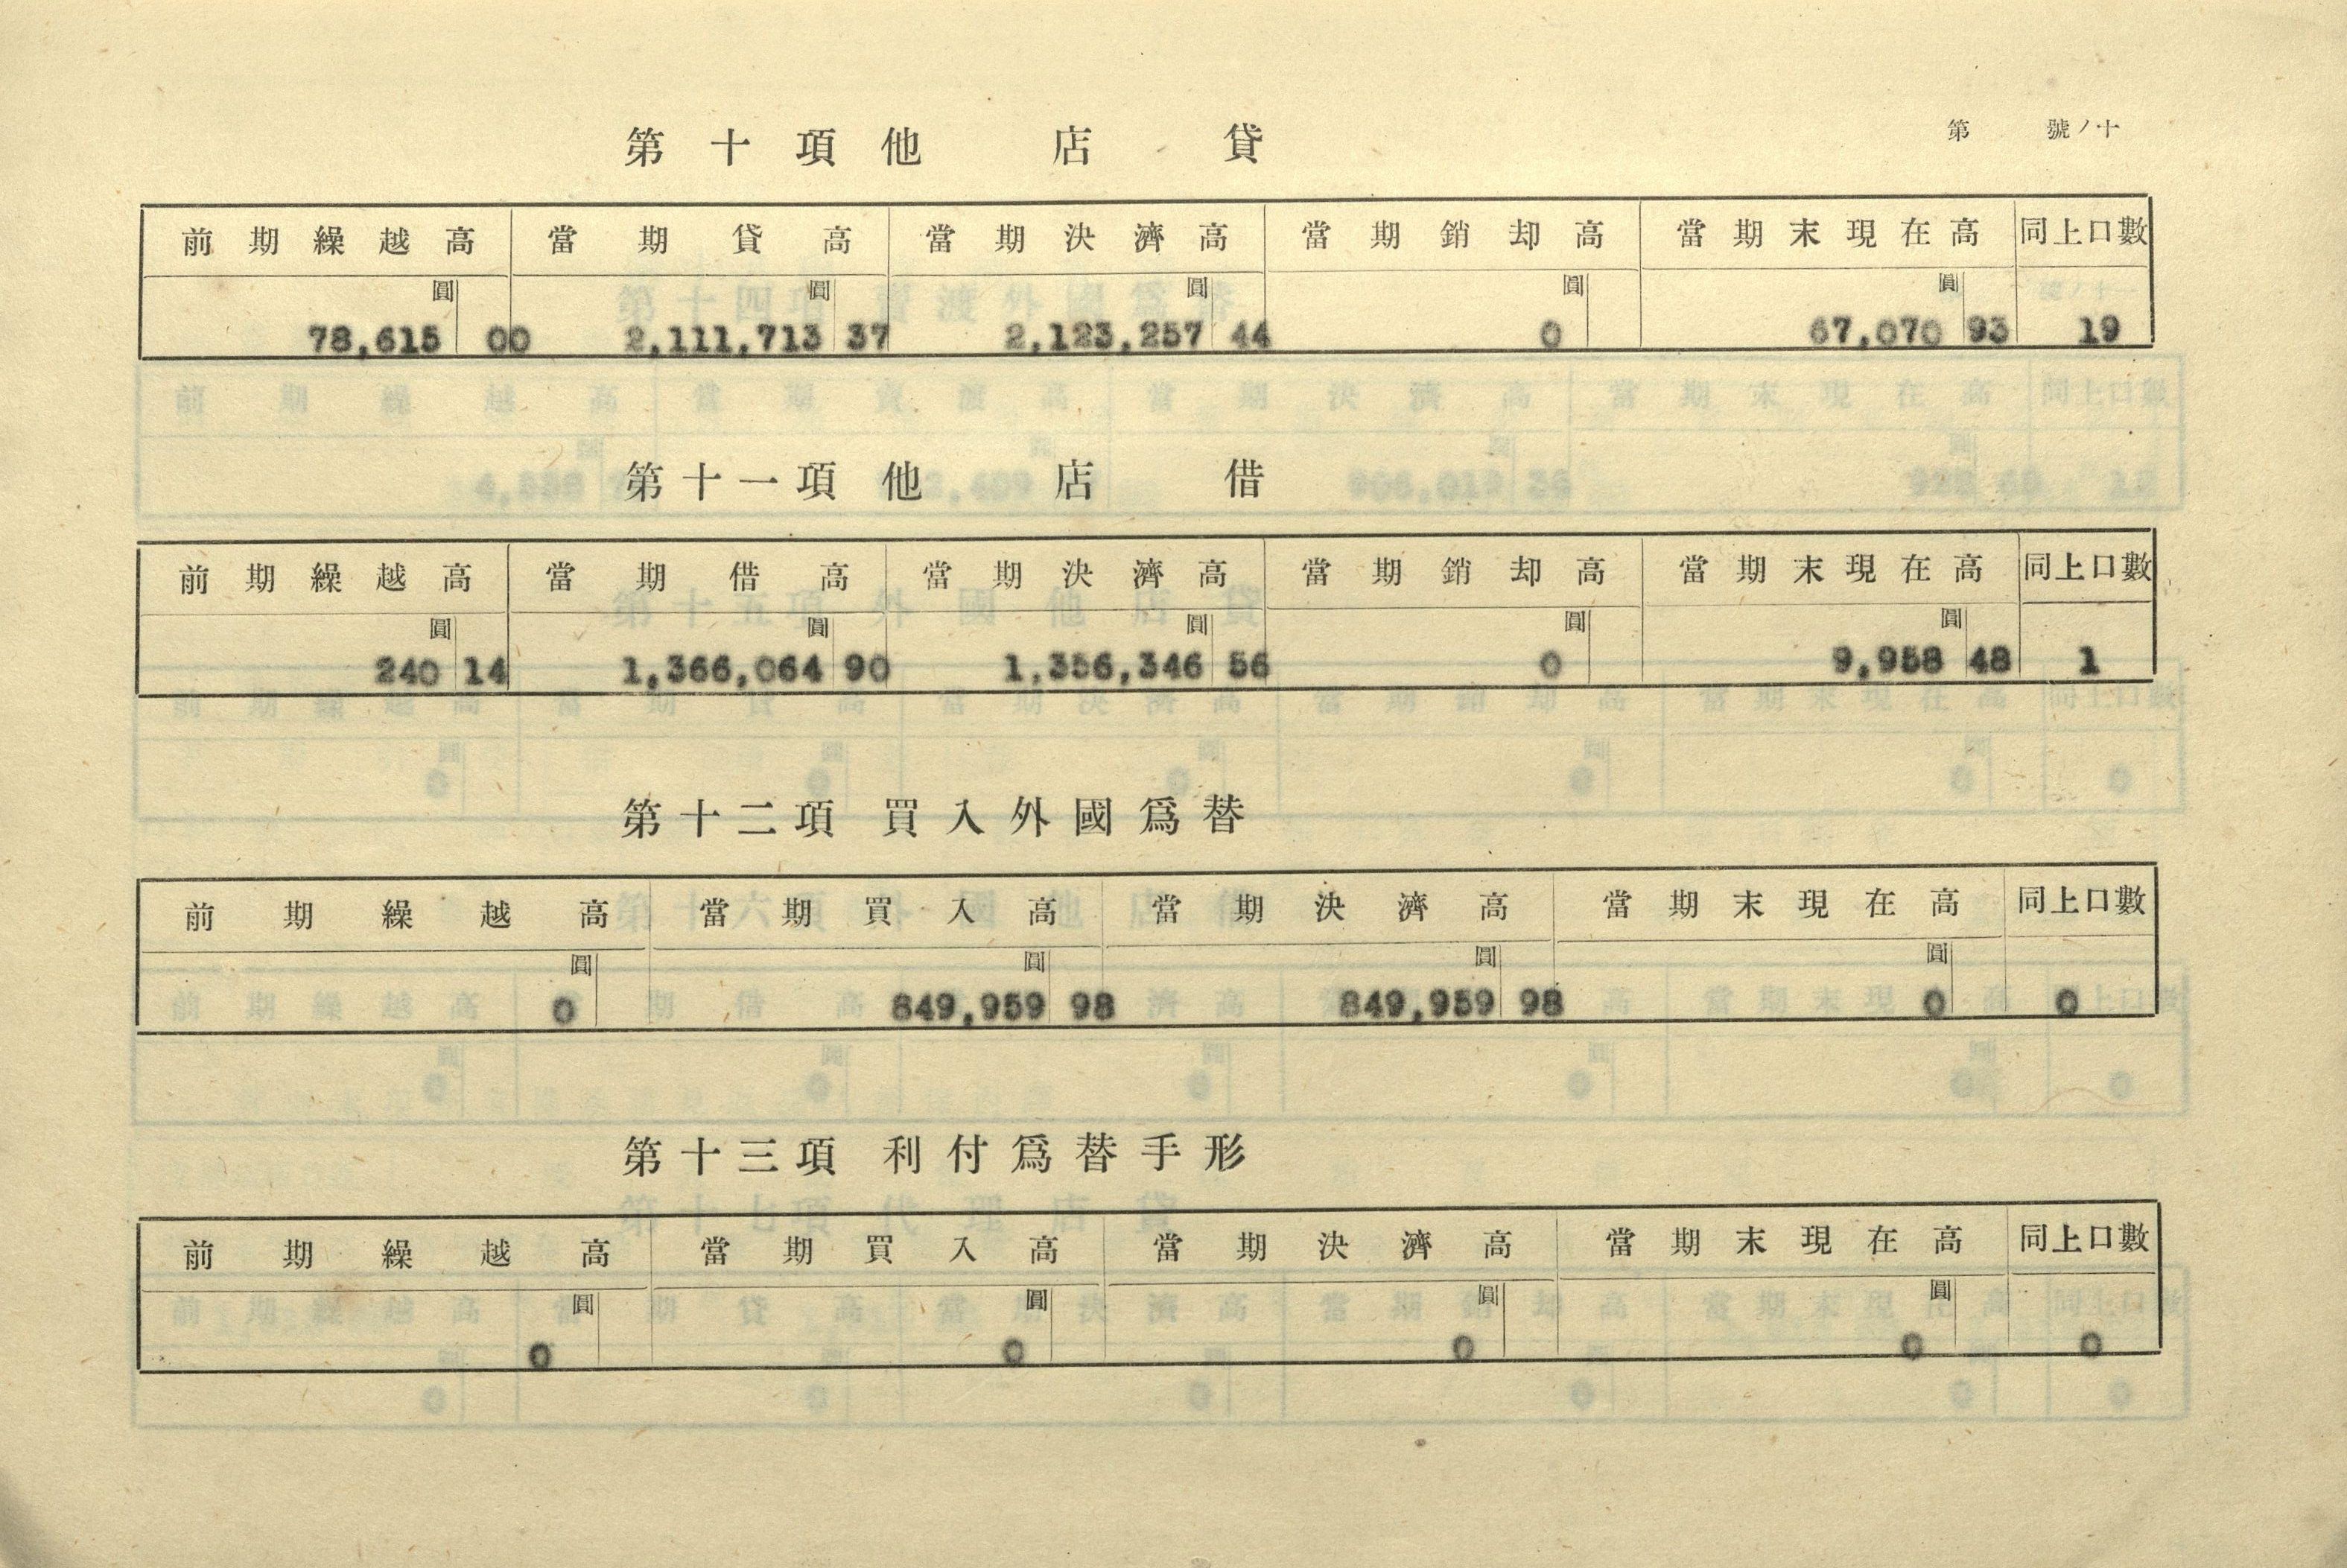 第十項他店貸
第 號ノ十
前期繰越高 當期貸高 當期決濟高 當期銷却高 當期末現在高 同上口數
圓 圓 圓 圓 圓
78,615 00 2,111,713 37 2,123,257 44 0 67,070 93 19
第十一項他店借
前期繰越高 當期借高 當期決濟高 當期銷却高 當期末現在高 同上口數
圓 圓 圓 圓 圓
240 14 1,366,064 90 1,356,346 56 0 9,958 48 1
第十二項 買入外國爲替
前期繰越高 當期買入高 當期決濟高 當期末現在高 同上口數
圓 圓 圓 圓
0 849,959 98 849,959 98 0 0
第十三項 利付爲替手形
前期繰越高 當期買入高 當期決濟高 當期末現在高 同上口數
圓 圓 圓 圓
0 0 0 0 0